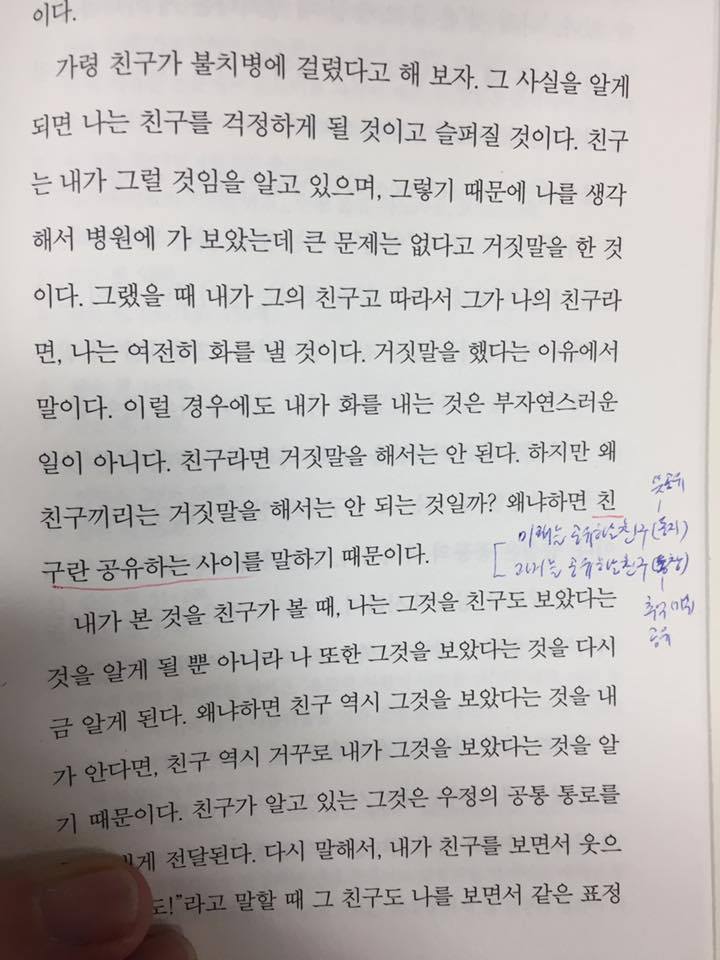 이다.
가령 친구가 불치병에 걸렸다고 해 보자. 그 사실을 알게
되면 나는 친구를 걱정하게 될 것이고 슬퍼질 것이다. 친구
는 내가 그럴 것임을 알고 있으며, 그렇기 때문에 나를 생각
해서 병원에 가 보았는데 큰 문제는 없다고 거짓말을 한 것
이다. 그랬을 때 내가 그의 친구고 따라서 그가 나의 친구라
면, 나는 여전히 화를 낼 것이다. 거짓말을 했다는 이유에서
말이다. 이럴 경우에도 내가 화를 내는 것은 부자연스러운
일이 아니다. 친구라면 거짓말을 해서는 안 된다. 하지만 왜
친구끼리는 거짓말을 해서는 안 되는 것일까? 왜냐하면 친
구란 공유하는 사이를 말하기 때문이다.
뜻 공유
미래를 공유하는 친구 (동지)
과거를 공유하는 친구 (동창)
공유
내가 본 것을 친구가 볼 때, 나는 그것을 친구도 보았다는
것을 알게 될 뿐 아니라 나 또한 그것을 보았다는 것을 다시
금 알게 된다. 왜냐하면 친구 역시 그것을 보았다는 것을 내
가 안다면, 친구 역시 거꾸로 내가 그것을 보았다는 것을 알
기 때문이다. 친구가 알고 있는 그것은 우정의 공통 통로를
전달된다. 다시 말해서, 내가 친구를 보면서 웃으
도!”라고 말할 때 그 친구도 나를 보면서 같은 표정